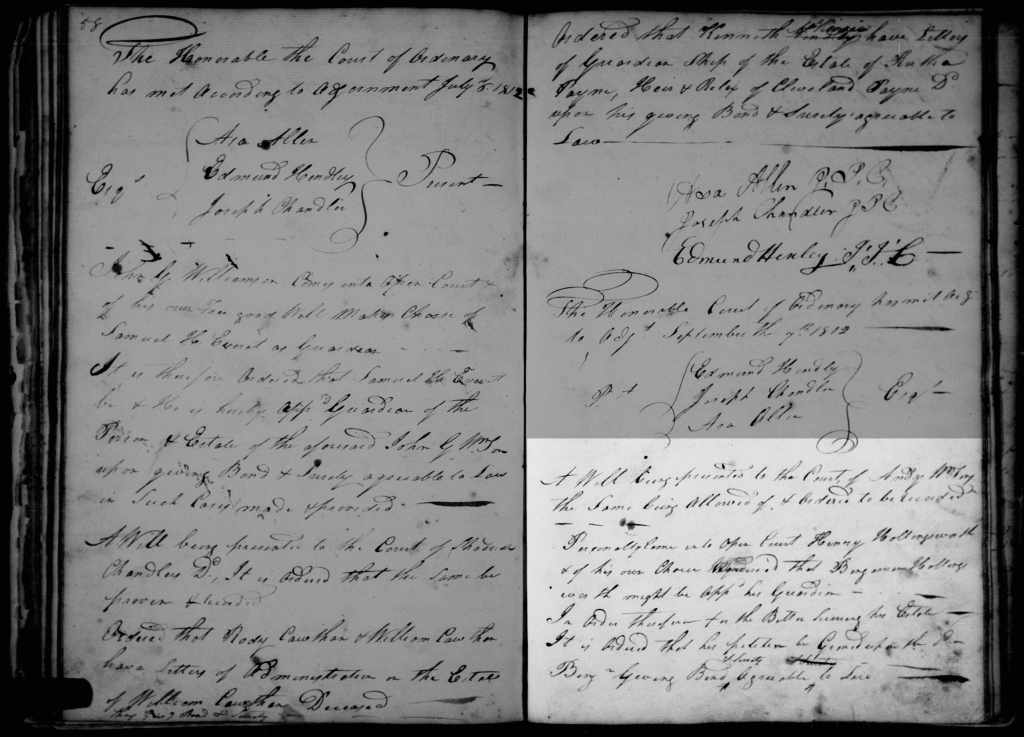 58
The Honorable the Court of Ordinary
has met Acording to Adjornment July 6th 1812
Asa Allen
Edmund Hendley
Joseph Chandler
Esqrs
Present
John G Williamson Comes into Open Court &
of his own free good Will Makes Choose of
Samuel H Everet as Guardean
It is therefore Ordered that Samuel H Everet
be & He is hereby Appd Guardean of the
Person & Estate of the aforesaid John G Wmson
upon giving Bond & Surety agreeable to Law
in Such Cases made & provided
A Will being presented to the Court of
Chandler Dd, It is Ordered that the Same be
proven & recorded
Ordered that Rody Cawthan & William Cawthan
have Letters of Administration on the Estate
of William Cawthan Deceased
they giving Bond & Surety
Ordered that Kenneth have Letters
of Guardean Ship of the Estate of
Payne, Heir & of Cleveland Payne Dd
upon his giving Bond & Surety agreeable to
Law
Asa Allen
Joseph Chandler
Edmund Henley
The Honorable Court of Ordinary has met
to Adjt September the 7th 1812
Pst
Edmund Hendly
Joseph Chandler
Asa Allen
Esqrs
A Will being presented to the Court of
the Same being Allowed of & Ordered to be recorded
Personally came into Open Court Henry Hollingsworth
& of his own Choice that Benjamin Hollings
worth might be Appd his Guardian
In Order therefore for the Better securing his Estate
It is Ordered that his petition be
Surety
Benjn Giving Bond Agreeable to Law